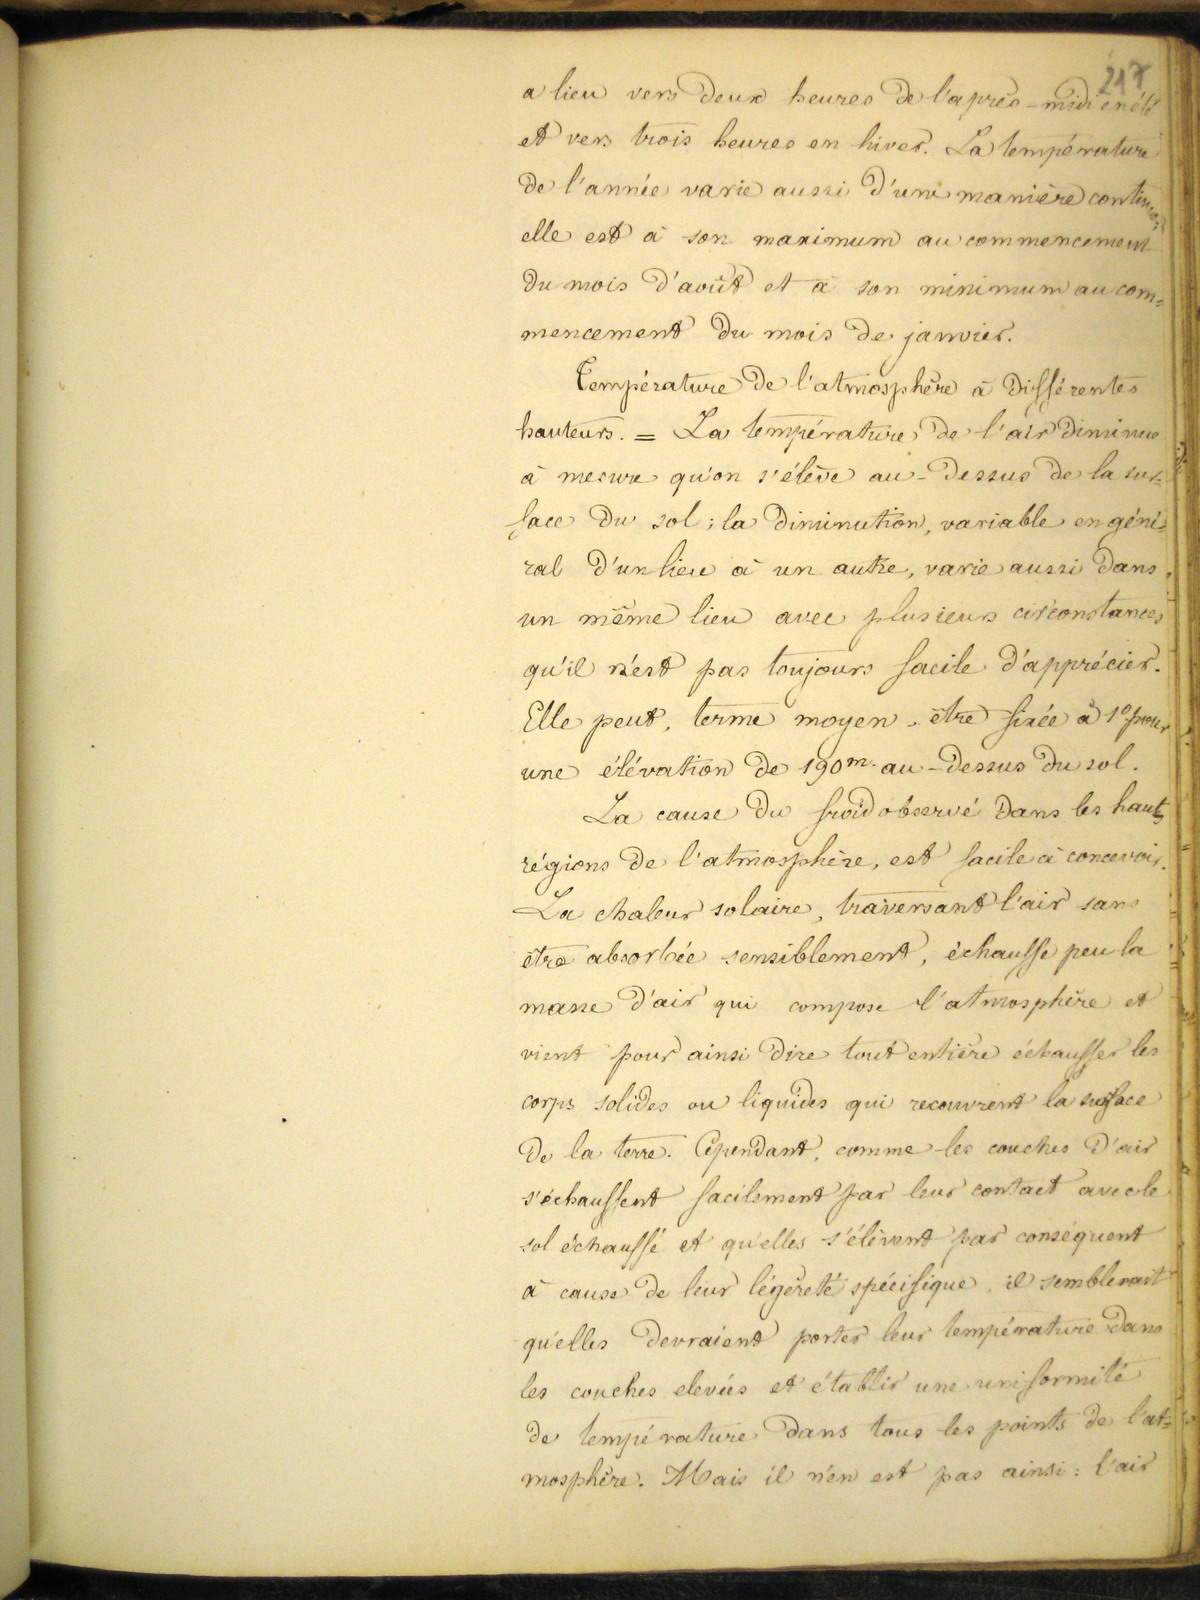 217
a lieu vers deux heures de l'après-midi en été
et vers trois heures en hiver. La température
de l'année varie aussi d'une manière continue;
elle est à son maximum au commencement
du mois d'août et à son minimum au com=
mencement du mois de janvier.
Température de l'atmosphère à différentes
hauteurs. = La température de l'air diminue
à mesure qu'on s'élève au-dessus de la sur=
face du sol; la diminution, variable en géné=
ral d'un lieu à un autre, varie aussi dans
un même lieu avec plusieurs circonstances
qu'il n'est pas toujours facile d'apprécier.
Elle peut, terme moyen, être fixée à 1° pour
une élévation de 190m. au-dessus du sol.
La cause du froid observé dans les hautes
régions de l'atmosphère, est facile à concevoir.
La chaleur solaire, traversant l'air sans
être absorbée sensiblement, échauffe peu la
masse d'air qui compose l'atmosphère et
vient pour ainsi dire tout entière échauffer les
corps solides ou liquides qui recouvrent la surface
de la terre. Cependant, comme les couches d'air
s'échauffent facilement par leur contact avec le
sol échauffé et qu'elles s'élèvent par conséquent
à cause de leur légèreté spécifique, il semblerait
qu'elles devraient porter leur température dans
les couches elevées et établir une uniformité
de température dans tous les points de l'at=
mosphère. Mais il n'en est pas ainsi: l'air